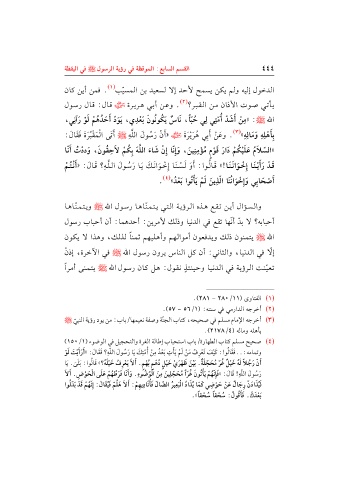 ٤٤٤ القسم السابع : الموقظة في رؤية الرسول ﷺ في اليقظة
الدخول إليه ولم يكن يسمح لأحد إلا لسعيد بن المسيّب(١). فمن أين كان
يأتي صوت الأذان من القبر؟(٢). وعن أبي هريرة ﷺ قال: قال رسول
الله ﷺ: «مِنْ أَشَدِّ أُمَّتِي لِي حُبّاً، نَاسٌ يَكُونُونَ بَعْدِي، يَوَدُّ أَحَدُهُمْ لَوْ رَآنِي،
بِأَهْلِهِ وَمَالِهِ»(٣). وعَنْ أَبِي هُرَيْرَةَ «أَنَّ رَسُولَ اللَّهِ ﷺ أَتَى الْمَقْبُرَةَ فَقَالَ:
«السَّلاَمُ عَلَيْكُمْ دَارَ قَوْمٍ مُؤْمِنِينَ، وَإِنَّا إِنْ شَاءَ اللَّهُ بِكُمْ لاَحِقُونَ، وَدِدْتُ أَنَّا
قَدْ رَأَيْنَا إِخْوَانَنَا»؟ قَالُوا: أَوَ لَسْنَا إِخْوَانَكَ يَا رَسُولَ اللَّهِ؟ قَالَ: «أَنْتُمْ
أَصْحَابِي وَإِخْوَانُنَا الَّذِينَ لَمْ يَأْتُوا بَعْدُ»(٤).
والسؤال أين تقع هذه الرؤية التي يتمنّاها رسول الله ﷺ ويتمنّاها
أحبابه؟ لا بدّ أنّها تقع في الدنيا وذلك لأمرين: أحدهما: أن أحباب رسول
الله ﷺ يتمنون ذلك ويدفعون أموالهم وأهليهم ثمناً لذلك، وهذا لا يكون
إلّا في الدنيا، والثاني: أن كل الناس يرون رسول الله ﷺ في الآخرة، إذنْ
تعيّنت الرؤية في الدنيا وحينئذٍ نقول: هل كان رسول الله ﷺ يتمنى أمراً
(١) الفتاوى (١١/ ٢٨٠ - ٢٨١).
(٢) أخرجه الدارمي في سننه: (١/ ٥٦ - ٥٧).
(٣) أخرجه الإمام مسلم في صحيحه، كتاب الجنّة وصفة نعيمها/ باب: من يود رؤية النبيّ ﷺ
بأهله وماله (٤/ ٢١٧٨).
(٤) صحيح مسلم كتاب الطهارة/ باب استحباب إطالة الغرة والتحجيل في الوضوء (١/ ١٥٠)
وتمامه: . . فَقَالُوا: كَيْفَ تَعْرِفُ مَنْ لَمْ يَأْتِ بَعْدُ مِنْ أُمَّتِكَ يَا رَسُولَ اللَّهِ؟ فَقَالَ: «أَرَأَيْتَ لَوْ
أَنَّ رَجُلاً لَهُ خَيْلٌ غُرٌّ مُحَجَّلَةٌ. بَيْنَ ظَهْرَيْ خَيْلٍ دُهْمٍ بُهْمٍ. أَلاَ يَعْرِفُ خَيْلَهُ؟» قَالُوا: بَلَى. يَا
رَسُولَ اللَّهِ! قَالَ: «فَإِنَّهُمْ يَأْتُونَ غُرّاً مُحَجَّلِينَ مِنَ الْوُضُوءِ. وَأَنَا فَرَطُهُمْ عَلَى الْحَوْضِ. أَلاَ
لَيُذَادَنَّ رِجَالٌ عَنْ حَوْضِي كَمَا يُذَادُ الْبَعِيرُ الضَّالُّ فَأُنَادِيهِمْ: أَلاَ هَلُمَّ فَيُقَالُ: إِنَّهُمْ قَدْ بَدَّلُوا
بَعْدَكَ. فَأَقُولُ: سُحْقاً سُحْقاً».